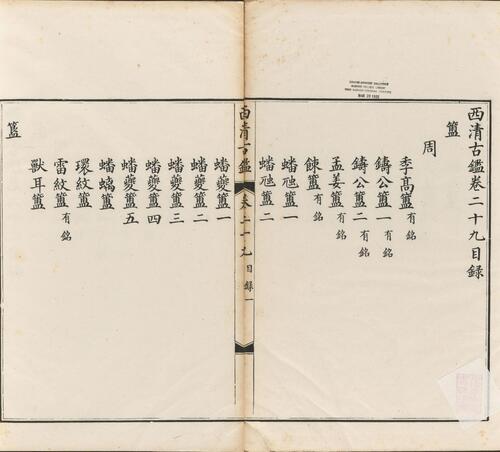 西清古鑑卷二十九目録
簠
周
季高簠有銘
鑄公簠一有銘
鑄公簠二有銘
孟姜簠有銘
餗簠有銘
蟠虺簠一
蟠虺簠二
西清古鑑 卷二十九 目録 一
蟠夔簠一
蟠夔簠二
蟠夔簠三
蟠夔簠四
蟠夔簠五
蟠螭簠
環紋簠
雷紋簠有銘
獸耳簠
簋